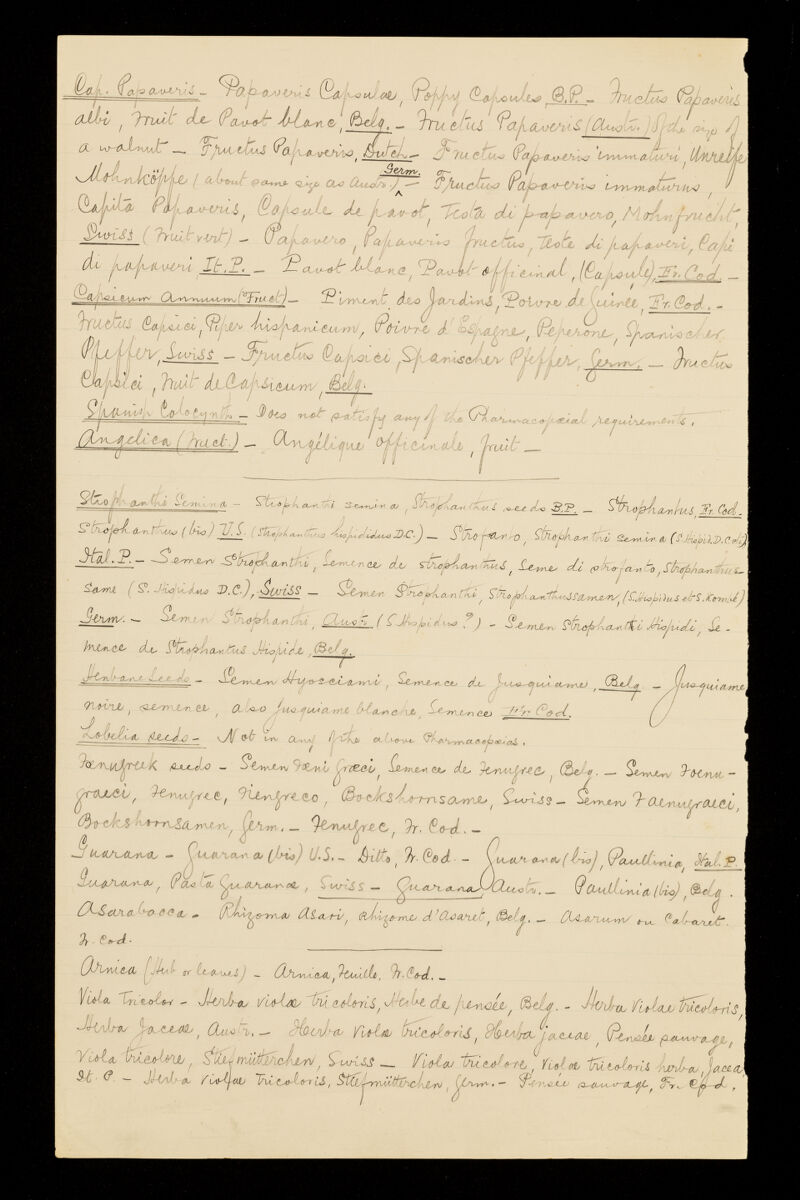 Cap. Papaveris - Papaveris Capsulae, Poppy Capsules, B.P. - Fructus Papaveris
albi, Fruit de Pavot blanc, Belg. - Fructus Papaveris (Austr.) of the size of
a walnut - Fructus Papaveris, Dutch - Fructus Papaveris immaturi, Unreife
Mohnköppe (about same size as Austr.) Germ. - Fructus Papaveris immaturus,
Capita Papaveris, Capsule de pavot, Testa di papavero, Mohnfrucht,
Swiss (Fruit vert) - Papavero, Papaveris fructus, Teste di papaveri, Capi
di papaveri It. P. - Pavot blanc, Pavot officinal, (Capsule), Fr. Cod. -
Capsicum Annuum (Fruct) - Piment des Jardins, Poivre de Guinée, Fr. Cod. -
Fructus Capsici, Piper hispanicum, Poivre d'Espagne, Peperone, Spanischer
Pfeffer, Swiss - Fructus Capsici, Spanischer Pfeffer, Germ. - Fructus
Capsici, Fruit de Capsicum, Belg.
Spanish Colocynth. - Does not satisfy any of the Pharmacopœial requirements.
Angelica (Fruct.) - Angélique officinale, fruit -
Strophanthi Semina - Strophanthi semina, Strophanthus seeds B.P. - Strophantus, Fr. Cod.
Strophanthus (bis) U.S. (Strophanthus hispididus D.C.) - Strofanto, Strophanthi semina (S. Hispid. D.C.
Ital. P. - Semen Strophanthi, Semence de strophanthus, Seme di strofanto, Strophanthus-
same (S. Hispidus D.C.), Swiss - Semen Strophanthi, Strophanthussamen, (S. Hispidus et S. Kombé)
Germ. - Semen Strophanthi, Austr. (S. Hispidus?) - Semen Strophanthi Hispidi, Se-
mence de Strophantus Hispide, Belg.
Henbane Seeds - Semen Hyosciami, Semence de Jusquiame, Belg. - Jusquiame
noire, semence, also Jusquiame blanche, Semence Fr. Cod.
Lobelia seeds - Not in any of the above Pharmacopœias.
Fœnugreek seeds - Semen Fœni Græci, Semence de Fenugrec, Belg. - Semen Foenu-
graeci, Fenugrec, Fiengreco, Bockshornsame, Swiss - Semen Faenugraeci,
Bockshornsamen, Germ. - Fenugrec, Fr. Cod. -
Guarana - Guarana (bis) U.S. - Ditto, Fr. Cod. - Guarana (bis), Paullinia, Ital. P.
Guarana, Pasta Guarana, Swiss - Guarana, Austr. - Paullinia (bis), Belg.
Asarabacca - Rhizoma Asari, rhizome d'Asaret, Belg. - Asarum ou Cabaret.
Fr. Cod.
Arnica (Herb or leaves) - Arnica, Feuille, Fr. Cod. -
Viola Tricolor - Herba violæ tricoloris, Herbe de pensée, Belg. - Herba Violae tricoloris,
Herba Jaceæ, Austr. - Herba violæ tricoloris, Herba jaceae, Pensée sauvage,
Viola tricolore, Stiefmütterchen, Swiss - Viola tricolore, Violæ tricoloris herba, Jacea
It. P. - Herba violae Tricoloris, Stiefmütterchen, Germ. - Pensée sauvage, Fr. Cod.